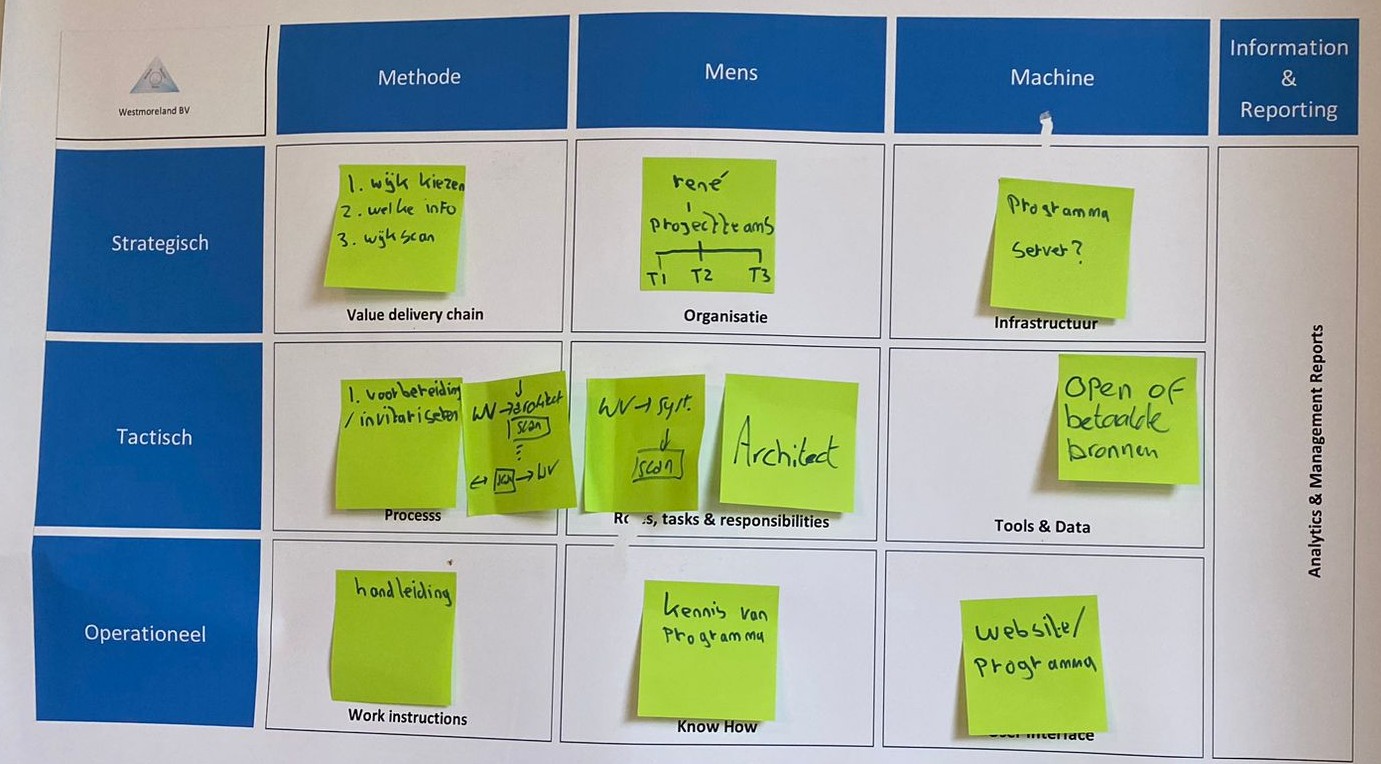 Westmoreland BV
Methode
Mens
Machine
Information
&
Reporting
Strategisch
1. wijk kiezen
2. welke info
3. wijkscan
Value delivery chain
rené
projectteams
T1 T2 T3
Organisatie
Programma
server?
Infrastructuur
Analytics & Management Reports
Tactisch
1. voorbereiding
WV → architect
scan
→ WV
Processs
WV → syst.
scan
Architect
tasks & responsibilities
Open of
betaalde
bronnen
Tools & Data
Operationeel
handleiding
Work instructions
kennis van
programma
Know How
website/
programma
User Interface